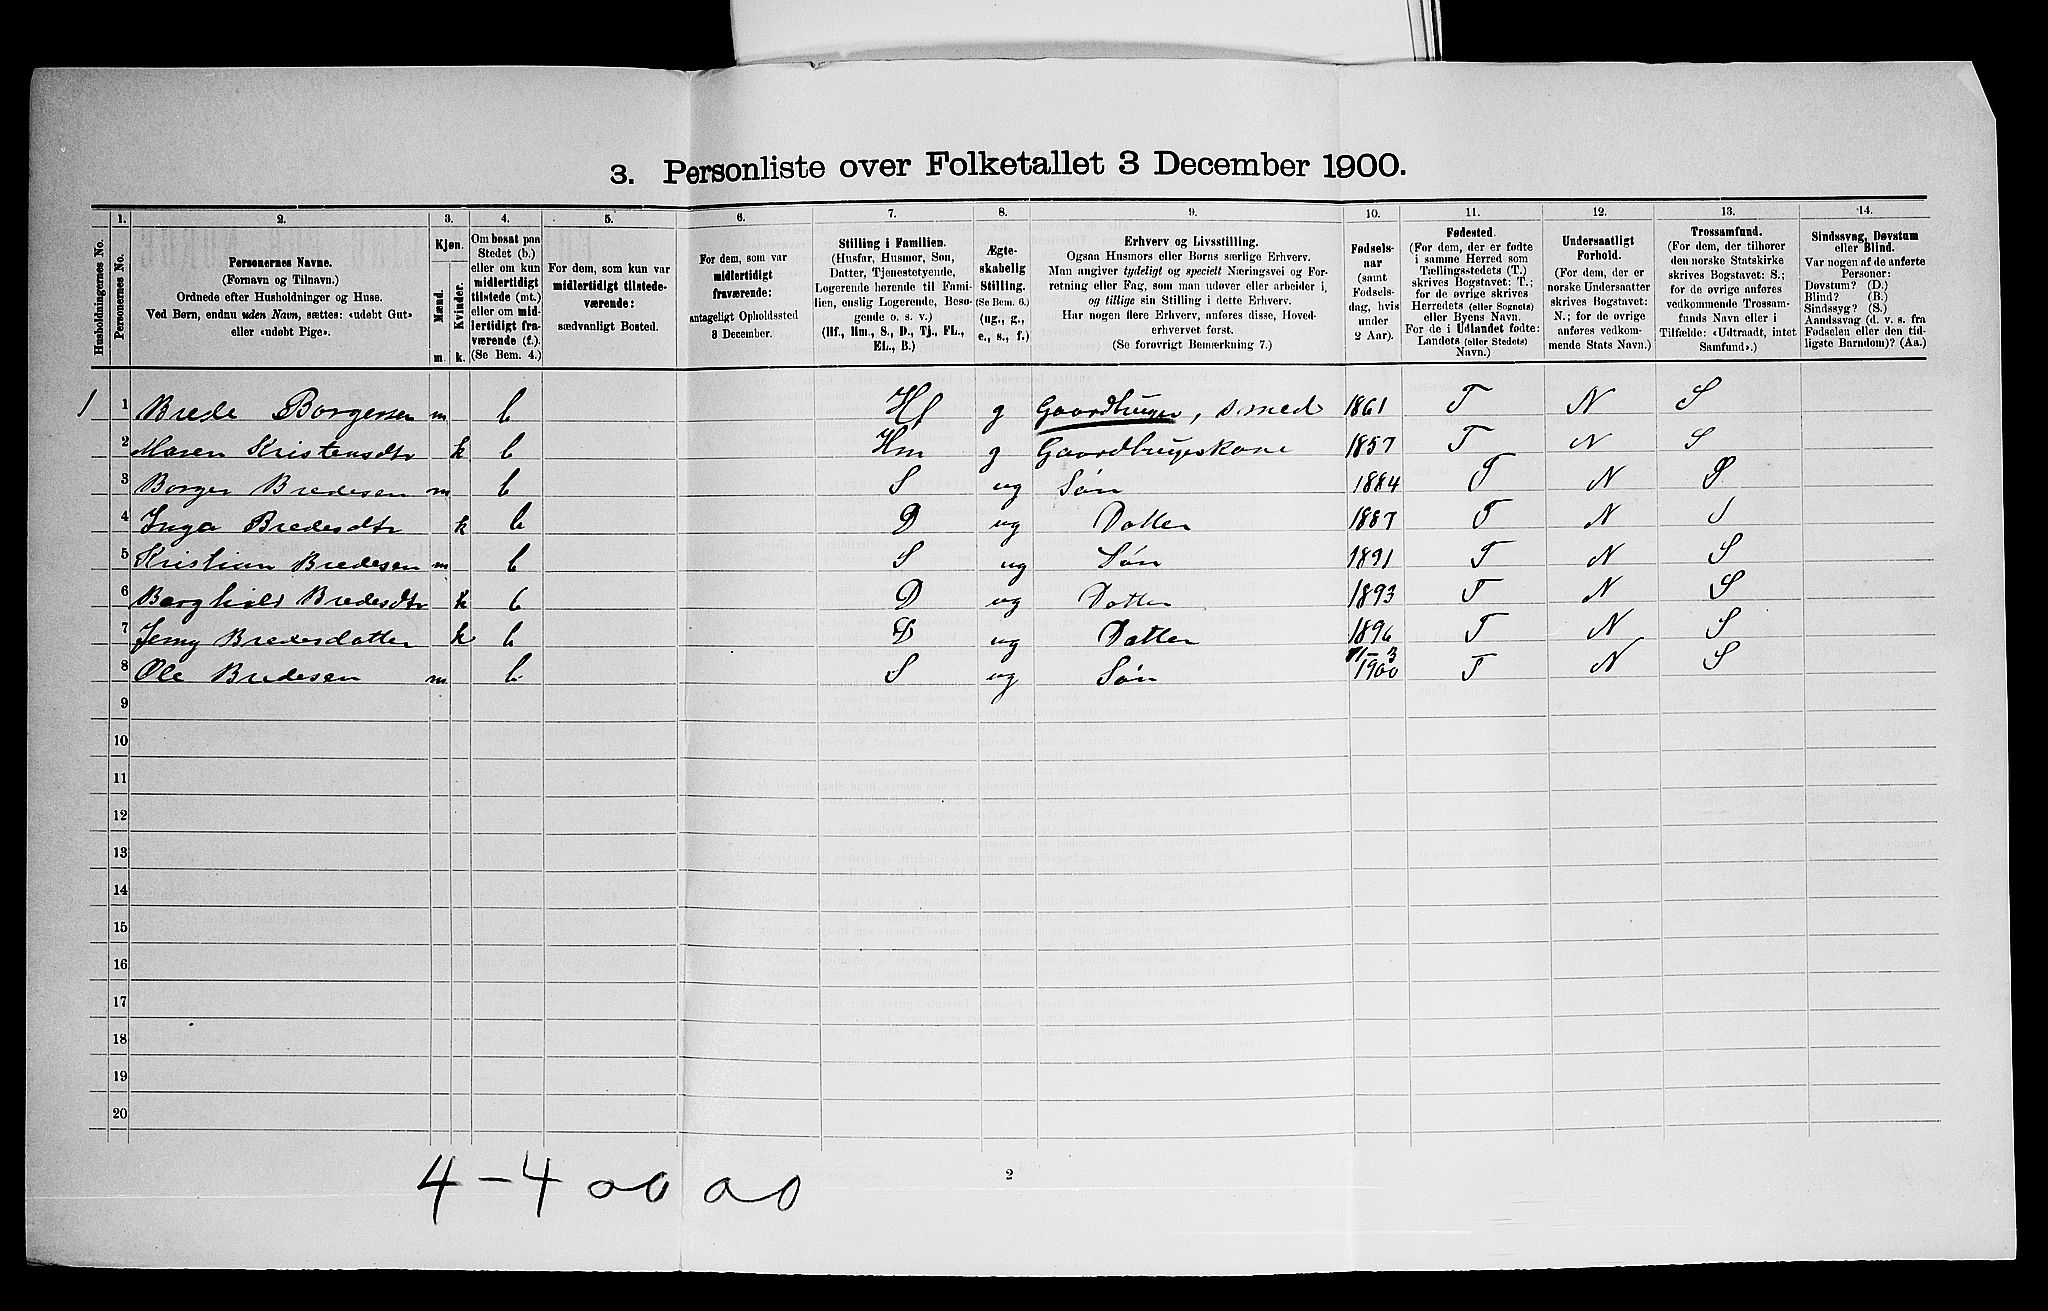 3. Personliste over Folketallet 3 December 1900.
Husholdningernes No.
1. Personernes No.
2. Personernes Navne. (Fornavn og Tilnavn.) Ordnede efter Husholdninger og Huse. Ved Børn, endnu uden Navn, sættes: «udøbt Gut» eller «udøbt Pige».
3. Kjøn. Mænd. m. Kvinder. k.
4. Om bosat paa Stedet (b.) eller om kun midlertidigt tilstede (mt.) eller om midlertidigt fraværende (f.). (Se Bem. 4.)
5. For dem, som kun var midlertidigt tilstedeværende: sædvanligt Bosted.
6. For dem, som var midlertidigt fraværende: antageligt Opholdssted 3 December.
7. Stilling i Familien. (Husfar, Husmor, Søn, Datter, Tjenestetyende, Logerende hørende til Familien, enslig Logerende, Besøgende o. s. v.) (Hf., Hm., S., D., Tj., FL., EL., B.)
8. Ægteskabelig Stilling. (Se Bem. 6.) (ug., g., e., s., f.)
9. Erhverv og Livsstilling. Ogsaa Husmors eller Børns særlige Erhverv. Man angiver tydeligt og specielt Næringsvei og Forretning eller Fag, som man udøver eller arbeider i, og tillige sin Stilling i dette Erhverv. Har nogen flere Erhverv, anføres disse, Hovederhvervet først. (Se forøvrigt Bemærkning 7.)
10. Fødselsaar (samt Fødselsdag, hvis under 2 Aar).
11. Fødested. (For dem, der er fødte i samme Herred som Tællingsstedets (T.) skrives Bogstavet: T.; for de øvrige skrives Herredets (eller Sognets) eller Byens Navn. For de i Udlandet fødte: Landets (eller Stedets) Navn.)
12. Undersaatligt Forhold. (For dem, der er norske Undersaatter skrives Bogstavet: N.; for de øvrige anføres vedkommende Stats Navn.)
13. Trossamfund. (For dem, der tilhører den norske Statskirke skrives Bogstavet: S.; for de øvrige anføres vedkommende Trossamfunds Navn eller i Tilfælde: «Udtraadt, intet Samfund».)
14. Sindssvag, Døvstum eller Blind. Var nogen af de anførte Personer: Døvstum? (D.) Blind? (B.) Sindssyg? (S.) Aandssvag (d. v. s. fra Fødselen eller den tidligste Barndom)? (Aa.)
1 1 Brede Borgersen m b Hf g Gaardbruger, smed 1861 T N S
2 Maren Kristensdtr k b Hm g Gaardbrugeskone 1857 T N S
3 Borger Bredesen m b S ug Søn 1884 T N S
4 Inga Bredesdtr k b D ug Datter 1887 T N S
5 Kristian Bredesen m b S ug Søn 1891 T N S
6 Borghild Bredesdtr k b D ug Datter 1893 T N S
7 Jenny Bredesdatter k b D ug Datter 1896 T N S
8 Ole Bredesen m b S ug Søn 1900 T N S
9
10
11
12
13
14
15
16
17
18
19
20
4-4 00 00
2